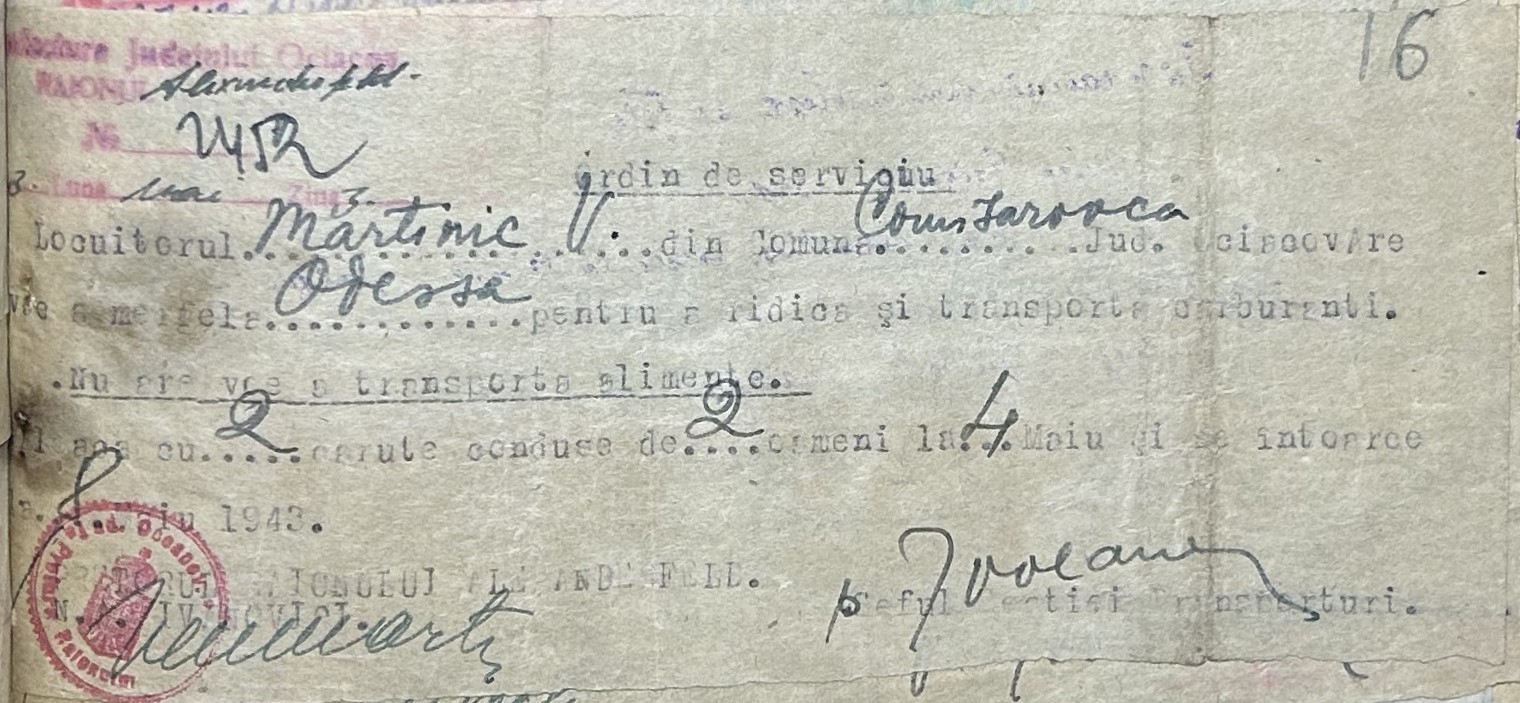 16
Judeţului Ociacov
RAIONUL
№ 2452
Luna mai Ziua 3.
Ordin de serviciu
Locuitorul Martinic V. din Comuna Constarovca Jud. OciacovAre
voe a merfela Odessa pentru a ridica şi transporta carburanti.
.Nu are voe a transporta alimente.
cu 2 carute conduse de 2 oameni la 4 Maiu şi se intoarce
8 Maiu 1943.
RAIONULUI ALEXANDERFELD.
p Şeful Sectiei Transporturi.